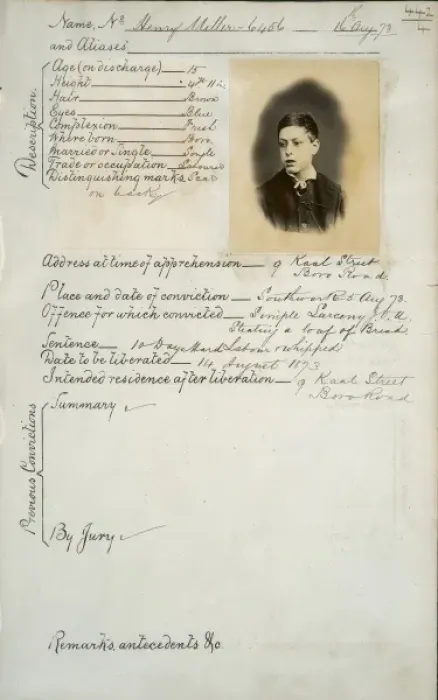 442
4
Name, No Henry Miller - 6456 16 Aug 73
and Aliases
Description.
Age (on discharge) 15
Height 4ft 11in
Hair Brown
Eyes Blue
Complexion Fresh
Where born Boro
Married or Single Single
Trade or occupation Labourer
Distinguishing marks Scar
on back
Address at time of apprehension 9 Kaal Street
Boro Road
Place and date of conviction Southwark 5 Aug 73.
Offence for which convicted Simple Larceny
Stealing a loaf of Bread
Sentence 10 Days Hard Labour & whipped
Date to be liberated 14 August 1873
Intended residence after liberation 9 Kaal Street
Boro Road
Previous Convictions
Summary
By Jury
Remarks, antecedents &c.